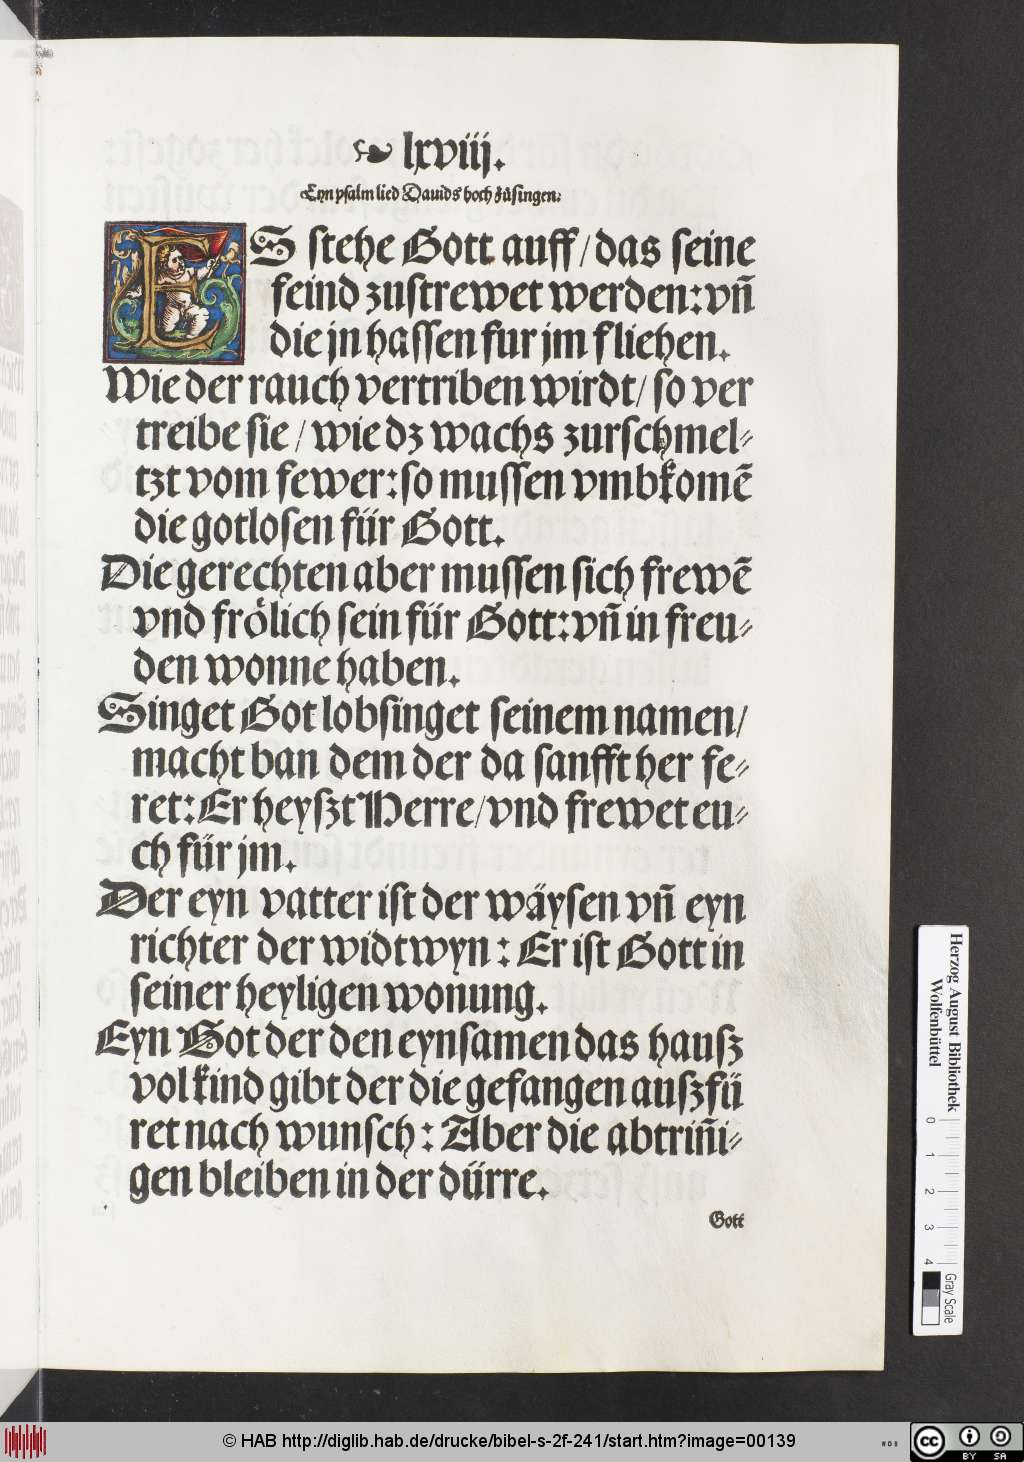 ☙ lxviij.
Eyn psalm lied Dauids hoch zů singen:
ES stehe Gott auff/das seine
feind zustrewet werden:vñ
die jn hassen fur jm fliehen.
Wie der rauch vertriben wirdt/so ver
treibe sie/wie dz wachs zurschmel⸗
tzt vom fewer:so mussen vmbkomē
die gotlosen für Gott.
Die gerechten aber mussen sich frewē
vnd frölich sein für Gott:vñ in freu⸗
den wonne haben.
Singet Got lobsinget seinem namen/
macht ban dem der da sanfft her fe⸗
ret:Er heyszt Herre/vnd frewet eu⸗
ch für jm.
Der eyn vatter ist der wäysen vñ eyn
richter der widtwyn: Er ist Gott in
seiner heyligen wonung.
Eyn Got der den eynsamen das hausz
vol kind gibt der die gefangen auszfü
ret nach wunsch: Aber die abtriñi⸗
gen bleiben in der dürre.
Gott
Herzog August Bibliothek
Wolfenbüttel
0 1 2 3 4
Gray Scale
© HAB http://diglib.hab.de/drucke/bibel-s-2f-241/start.htm?image=00139
WDB
cc BY SA